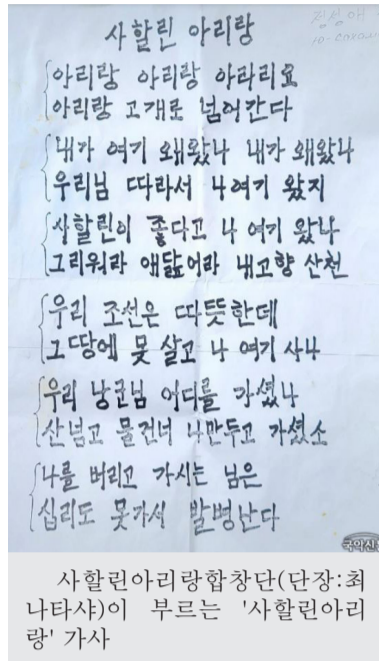 사할린 아리랑
정성애
아리랑 아리랑 아라리요
아리랑 고개로 넘어간다
내가 여기 왜왔나 내가 왜왔나
우리님 따라서 나여기 왔지
사할린이 좋다고 나 여기 왔나
그리워라 애닲어라 내고향 산천
우리 조선은 따뜻한데
그땅에 못 살고 나 여기 사나
우리 낭군님 어디를 가셨나
산넘고 물건너 나만두고 가셨소
나를 버리고 가시는 님은
십리도 못가서 발병난다
국악신문
사할린아리랑합창단(단장:최
나타샤)이 부르는 '사할린아리
랑' 가사